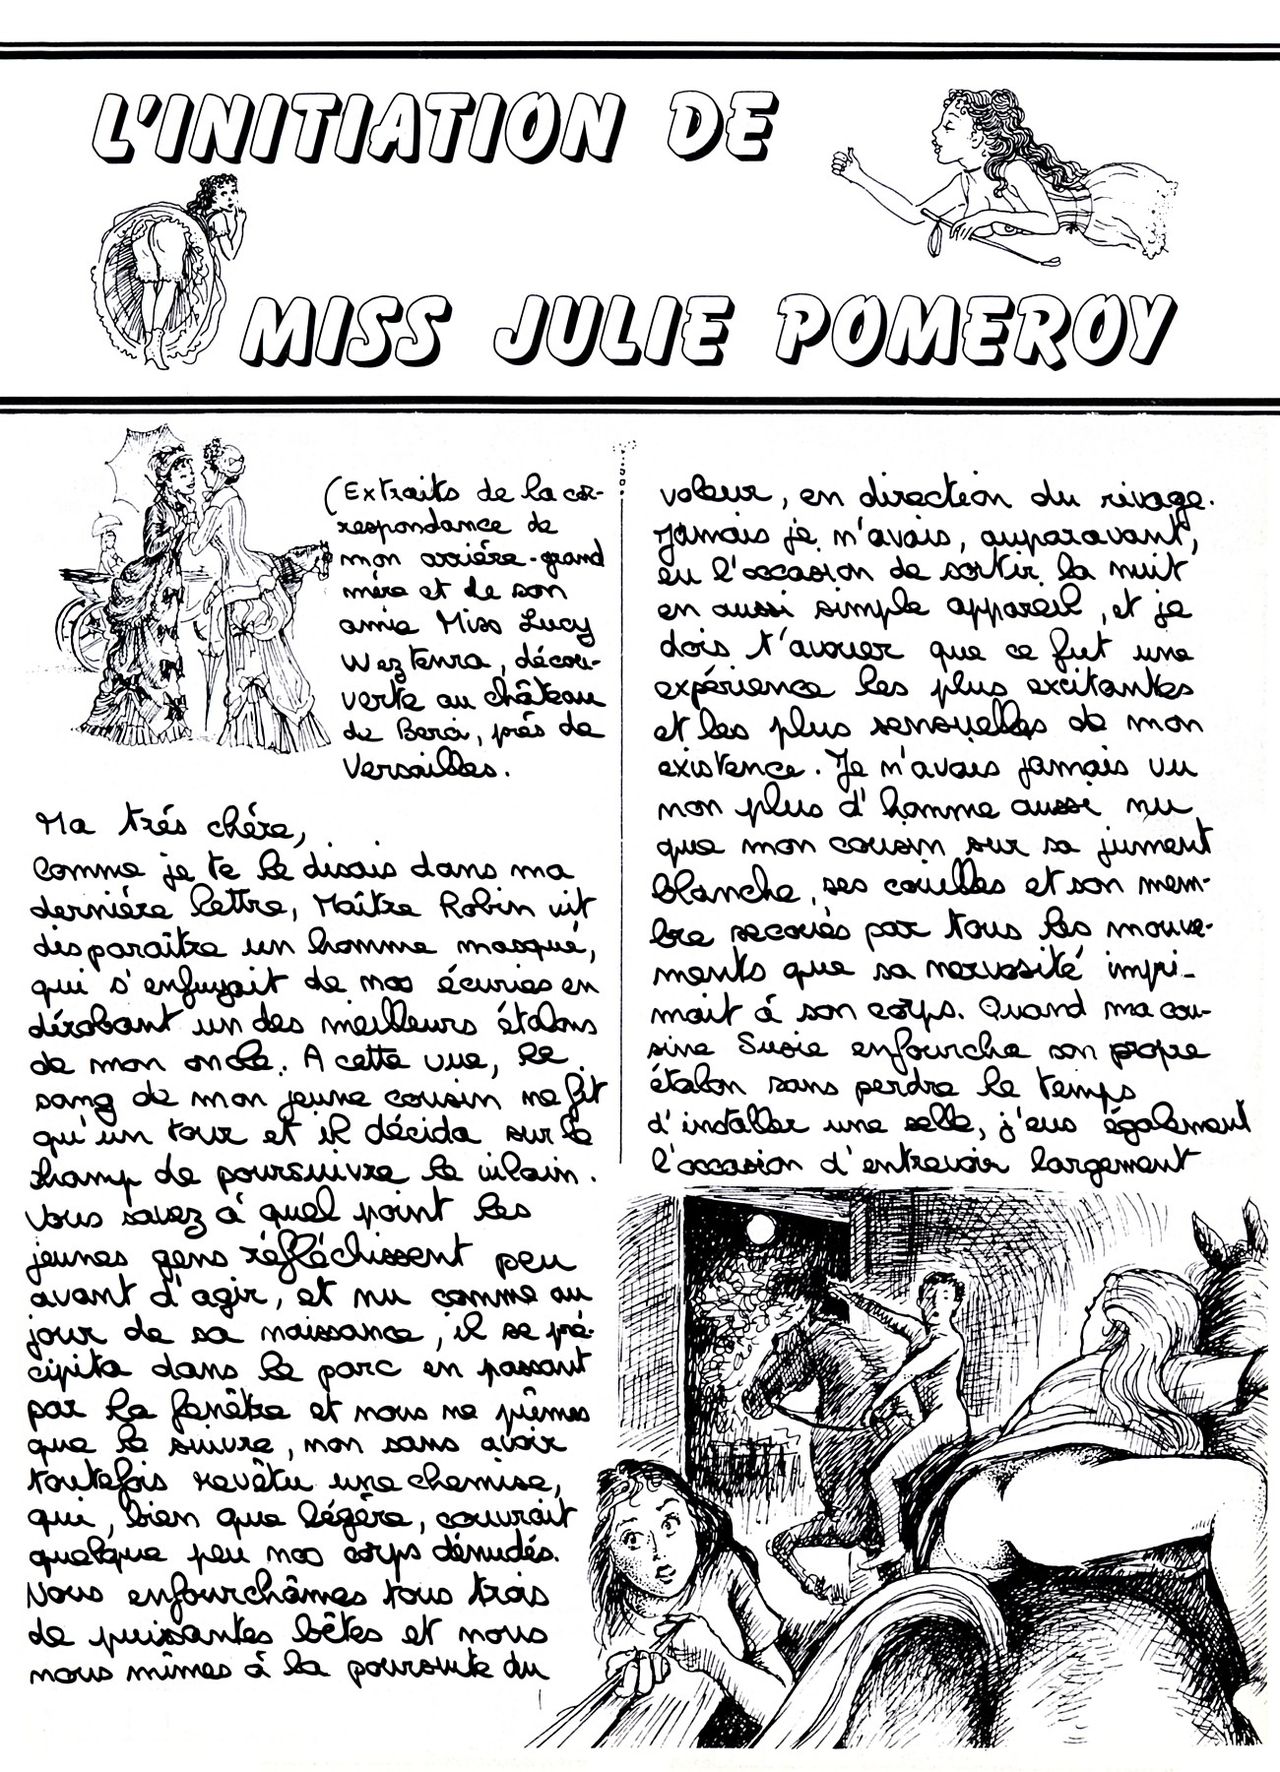 L'INITIATION DE
MISS JULIE POMEROY
(Extraits de la cor-
respondance de
mon arriére-grand
mére et de son
amie Miss Lucy
Weztenra, décou-
verte au château
de Berci, prés de
Versailles.
Ma trés chére,
Comme je te le disais dans ma
derniére lettre, Maître Robin vit
disparaître un homme masqué,
qui s'enfuyait de nos écuries en
dérobant un des meilleurs étalons
de mon oncle. A cette vue, le
sang de mon jeune cousin ne fit
qu'un tour et il décida sur le
champ de poursuivre le vilain.
Vous savez à quel point les
jeunes gens réfléchissent peu
avant d'agir, et nu comme au
jour de sa naissance, il se pré-
cipita dans le parc en passant
par la fenêtre et nous ne pûmes
que le suivre, non sans avoir
toutefois revêtu une chemise,
qui, bien que légère, couvrait
quelque peu nos corps dénudés.
Nous enfourchâmes tous trois
de puissantes bêtes et nous
nous mîmes à la poursuite du
voleur, en direction du rivage.
Jamais je n'avais, auparavant,
eu l'occasion de sortir la nuit
en aussi simple appareil, et je
dois t'avouer que ce fut une
expérience les plus excitantes
et les plus sensuelles de mon
existence. Je n'avais jamais vu
non plus d'homme aussi nu
que mon cousin sur sa jument
blanche, ses couilles et son mem-
bre secoués par tous les mouve-
ments que sa nervosité impri-
mait à son corps. Quand ma cou-
sine Susie enfourcha son propre
étalon sans perdre le temps
d'installer une selle, j'eus également
l'occasion d'entrevoir largement